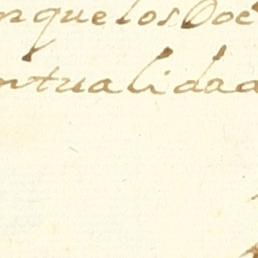 nque los Doc
ntualidad